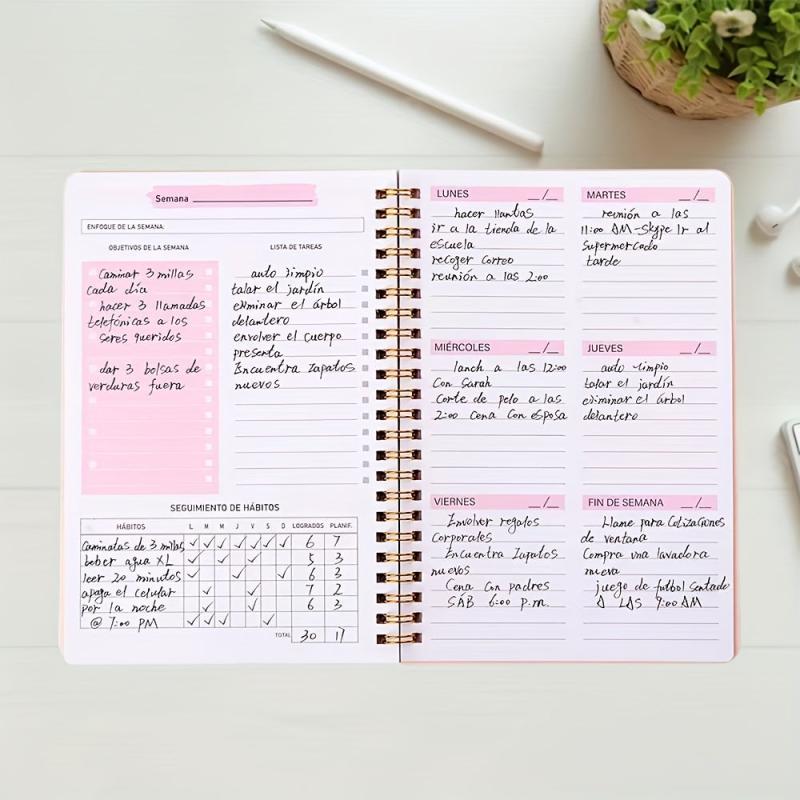 Semana
ENFOQUE DE LA SEMANA:
OBJETIVOS DE LA SEMANA
Caminar 3 millas
cada día
hacer 3 llamadas
telefónicas a los
seres queridos
dar 3 bolsas de
verduras fuera
LISTA DE TAREAS
auto limpio
talar el jardín
eliminar el árbol
delantero
envolver el cuerpo
presenta
Encuentra Zapatos
nuevos
SEGUIMIENTO DE HÁBITOS
HÁBITOS L M M J V S D LOGRADOS PLANIF.
Caminatas de 3 millas ✓ ✓ ✓ ✓ ✓ ✓ ✓ 6 7
beber agua XL ✓ ✓ ✓ 5 3
leer 20 minutos ✓ ✓ ✓ 6 3
apaga el celular ✓ ✓ 7 2
por la noche ✓ ✓ 6 3
@ 7:00 PM ✓ ✓ ✓ ✓
TOTAL 30 17
LUNES __/__
hacer llantas
ir a la tienda de la
escuela
recoger correo
reunión a las 2:00
MARTES __/__
reunión a las
11:00 AM-Skype Ir al
Supermercado
tarde
MIÉRCOLES __/__
lanch a las 12:00
Con Sarah
Corte de pelo a las
2:00 Cena Con esposa
JUEVES __/__
auto limpio
talar el jardín
eliminar el árbol
delantero
VIERNES __/__
Envolver regalos
Corporales
Encuentra Zapatos
nuevos
Cena Con padres
SAB 6:00 p.m.
FIN DE SEMANA __/__
Llame para Cotizaciones
de ventana
Compra una lavadora
nueva
juego de futbol Sentado
A LAS 9:00 AM